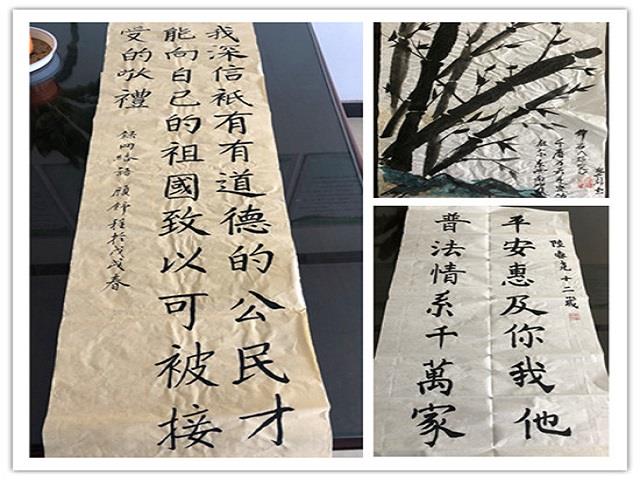 我深信祇有有道德的公民才
能向自己的祖國致以可被接
受的敬禮
錄网络語 程於戊戌春
陸 十二歲
平安惠及你我他
普法情系千萬家